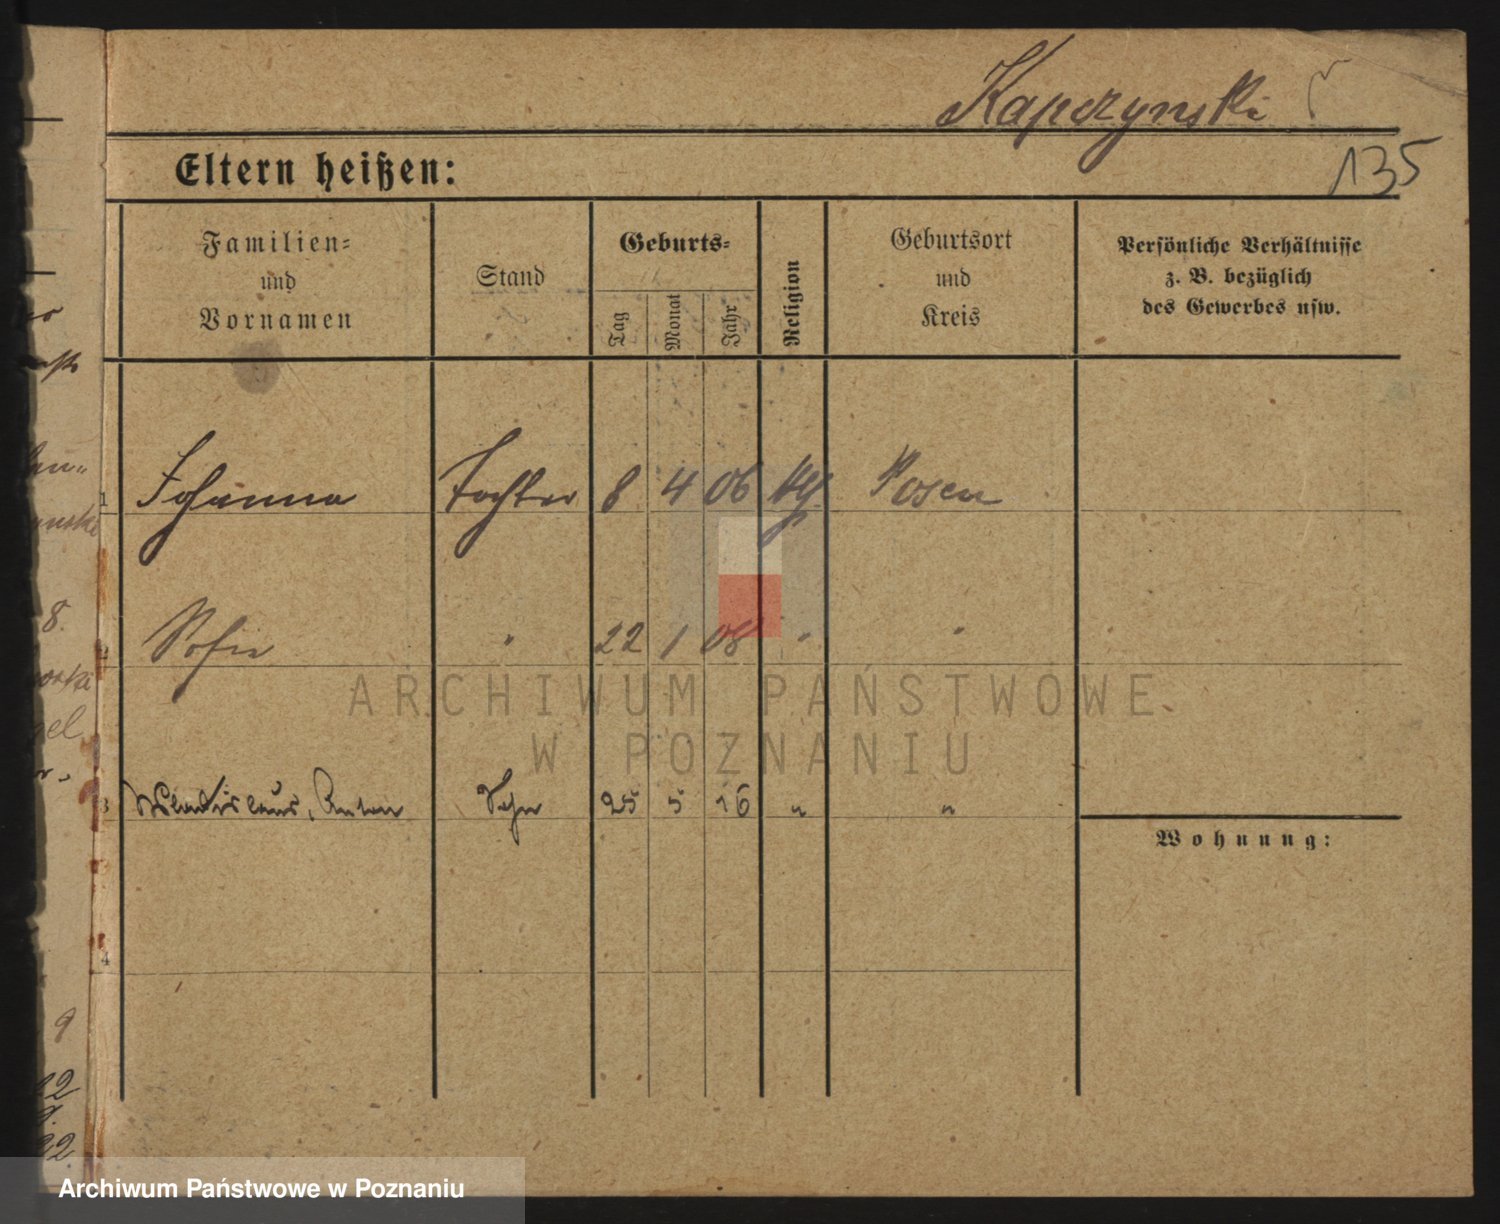 Kapczynski
135
Eltern heißen:
Familien- und Vornamen
Stand
Geburts-
Tag
Monat
Jahr
Religion
Geburtsort und Kreis
Persönliche Verhältnisse
z. B. bezüglich
des Gewerbes usw.
1 Johanna Tochter 8 4 06 kth. Posen
2 Sofie " 22 1 08 " "
3 Wladislaus, Anton Sohn 25 5 16 " "
Wohnung:
4
8.
9
ARCHIWUM PAŃSTWOWE
W POZNANIU
Archiwum Państwowe w Poznaniu